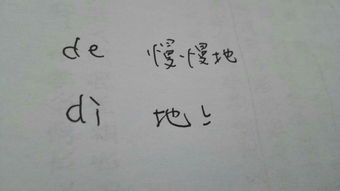 de 慢慢地
dì 地上